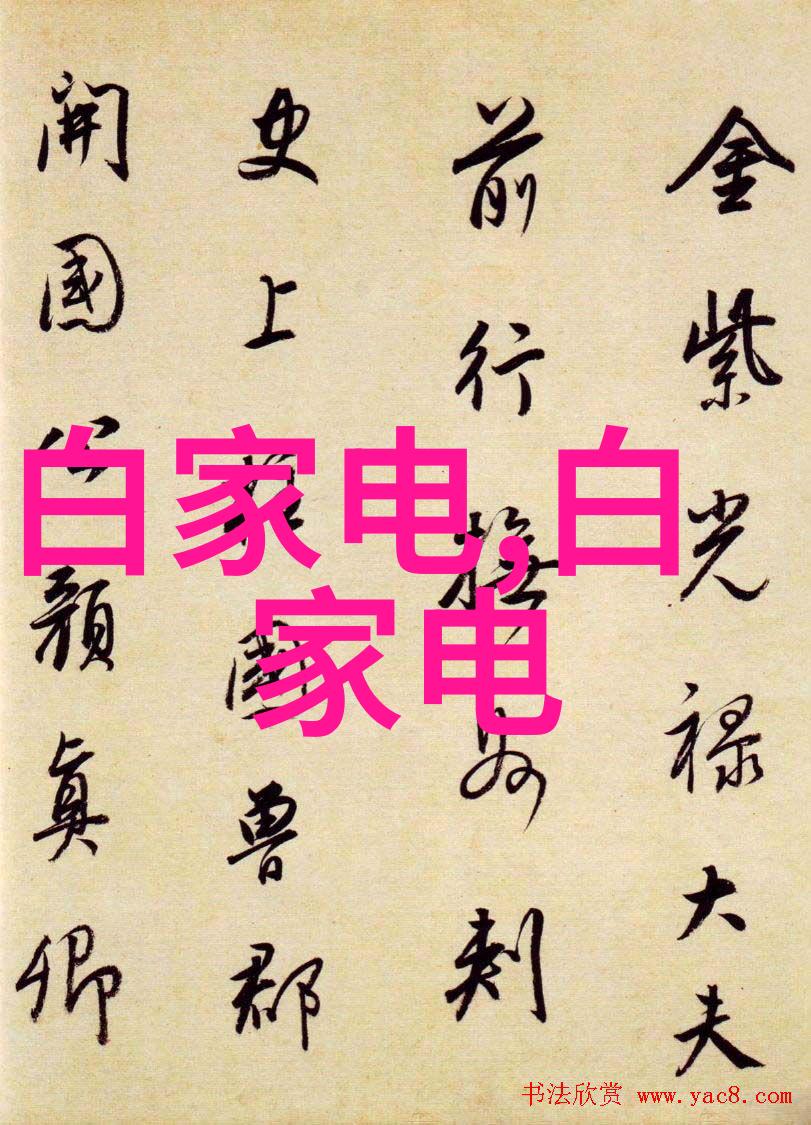 金紫光禄大夫
前行撫州刺
史上國魯郡
開國公顏真卿
白家电,白
家电
书法欣赏 www.yac8.com